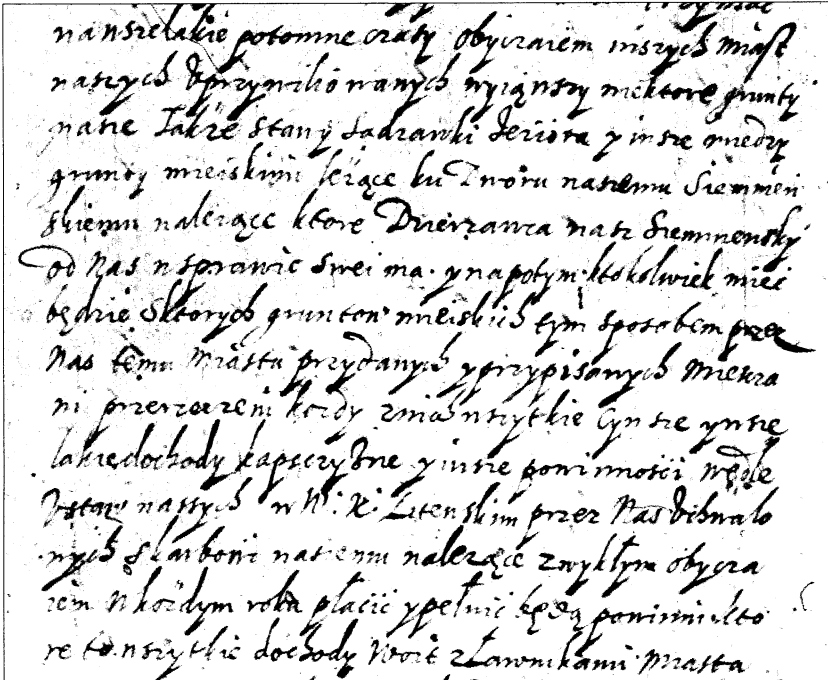 na wszelakie potomne czasy obyczaiem inszych miast
naszych uprzywilio wanych wyiąwszy niektore grunty
nasze Także stawy Sadzawki Jeziora y insze miedzy
grunty mieiskimi leżące ku Dworu naszemu Siemnien
skiemu należące ktore Dzierzawca nasz Siemnienskÿ
od Nas w sprawie swei ma. y napotym ktokolwiek miec
będzie Sktorych gruntow mieiskich tym sposobem przez
Nas temu Miastu przydanych y przypisanych Miesza
ni przerzeczeni kożdy znich wszytkie Cynsze y wsze
lakie dochody kapsczyzne y insze powinnosci wedle
Ustaw naszych w W. X. Litenskim przez Nas Uchwalo
nych skarbowi naszemu należące zwykłym obycza
iem w kożdym roku płacić y pełnić będą powinni. kto
re to wszytkie dochody Woit z Ławnikami Miasta